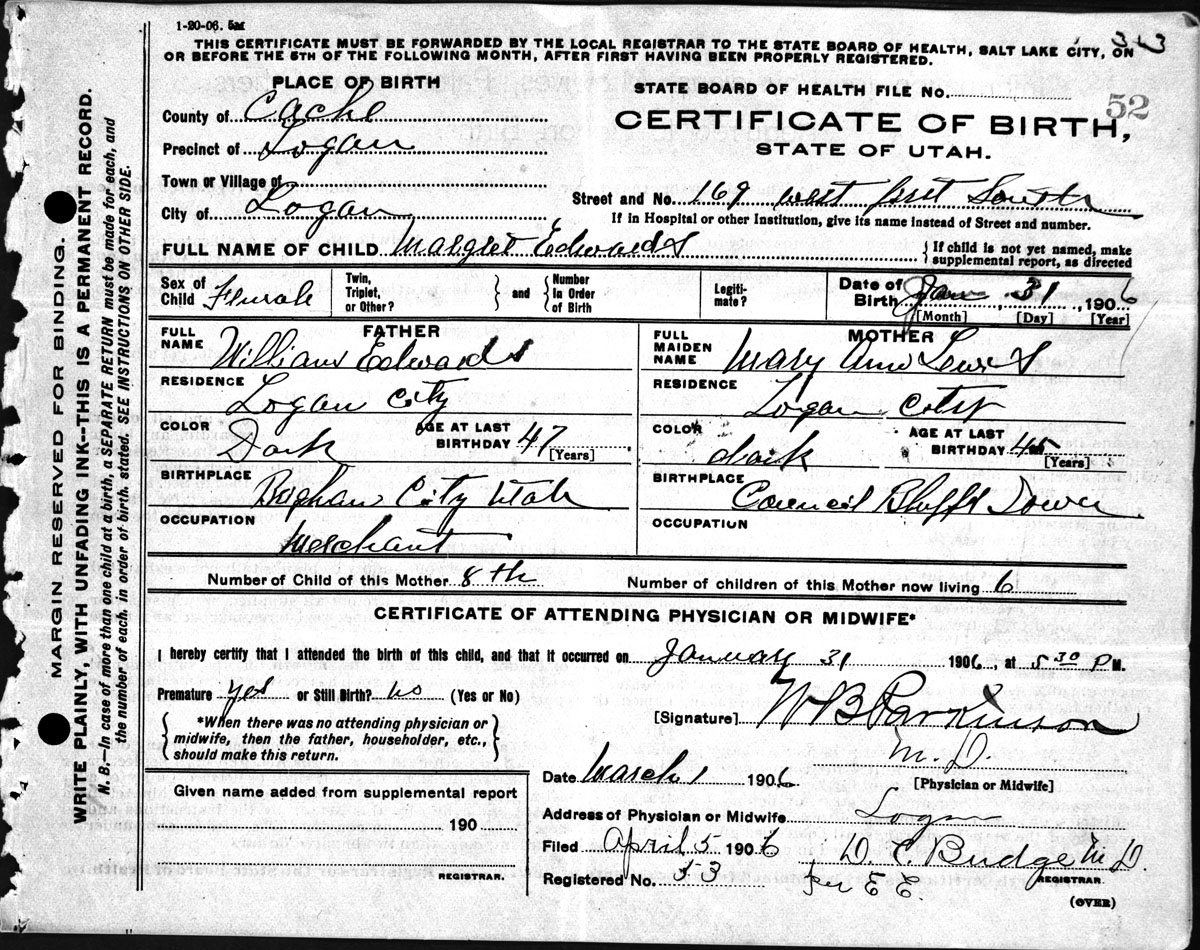 1-20-06. 5M
THIS CERTIFICATE MUST BE FORWARDED BY THE LOCAL REGISTRAR TO THE STATE BOARD OF HEALTH, SALT LAKE CITY, ON
OR BEFORE THE 5TH OF THE FOLLOWING MONTH, AFTER FIRST HAVING BEEN PROPERLY REGISTERED.
PLACE OF BIRTH
County of Cache
Precinct of Logan
Town or Village of
City of Logan
STATE BOARD OF HEALTH FILE No.
52
CERTIFICATE OF BIRTH,
STATE OF UTAH.
Street and No. 169 West first South
If in Hospital or other Institution, give its name instead of Street and number.
FULL NAME OF CHILD Margret Edwards
{ If child is not yet named, make
supplemental report, as directed
Sex of Child Female
Twin, Triplet, or Other? } and { Number In Order of Birth
Legiti- mate?
Date of Birth Jan 31, 1906
[Month] [Day] [Year]
FATHER
FULL NAME William Edwards
RESIDENCE Logan City
COLOR Dark
AGE AT LAST BIRTHDAY 47 [Years]
BIRTHPLACE City Utah
OCCUPATION Merchant
MOTHER
FULL MAIDEN NAME Mary Ann Lewis
RESIDENCE Logan City
COLOR dark
AGE AT LAST BIRTHDAY 45 [Years]
BIRTHPLACE Council Bluffs Iowa
OCCUPATION
Number of Child of this Mother 8th
Number of children of this Mother now living 6
CERTIFICATE OF ATTENDING PHYSICIAN OR MIDWIFE*
I hereby certify that I attended the birth of this child, and that it occurred on January 31 1906, at 5 30 P M.
Premature yes or Still Birth? no (Yes or No)
{ *When there was no attending physician or
midwife, then the father, householder, etc.,
should make this return. }
[Signature] W B Parkinson
M. D.
[Physician or Midwife]
Date March 1 1906
Given name added from supplemental report
190
REGISTRAR.
Address of Physician or Midwife Logan
Filed April 5 1906
D. C. Budge M D.
REGISTRAR.
Registered No. 53
Per E E.
(OVER)
MARGIN RESERVED FOR BINDING.
WRITE PLAINLY, WITH UNFADING INK--THIS IS A PERMANENT RECORD.
N. B.—In case of more than one child at a birth, a SEPARATE RETURN must be made for each, and
the number of each, in order of birth, stated. SEE INSTRUCTIONS ON OTHER SIDE.